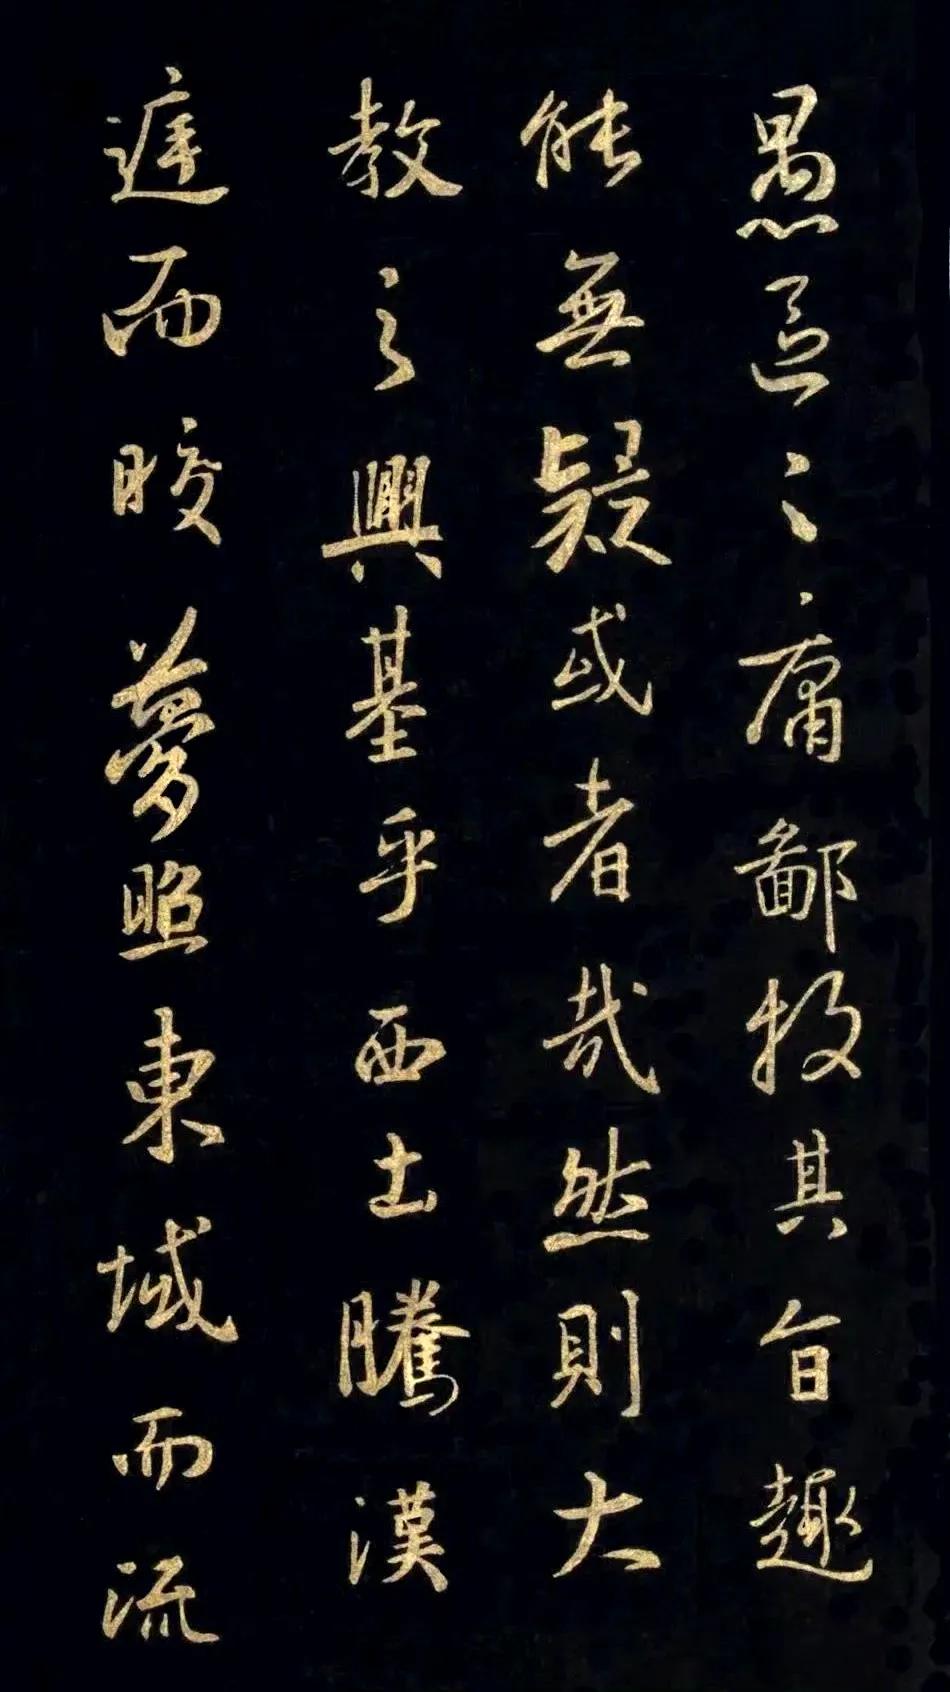 愚區〻庸鄙投其旨趣
能無疑或者哉然則大
教之興基乎西土騰漢
庭而皎夢照東域而流